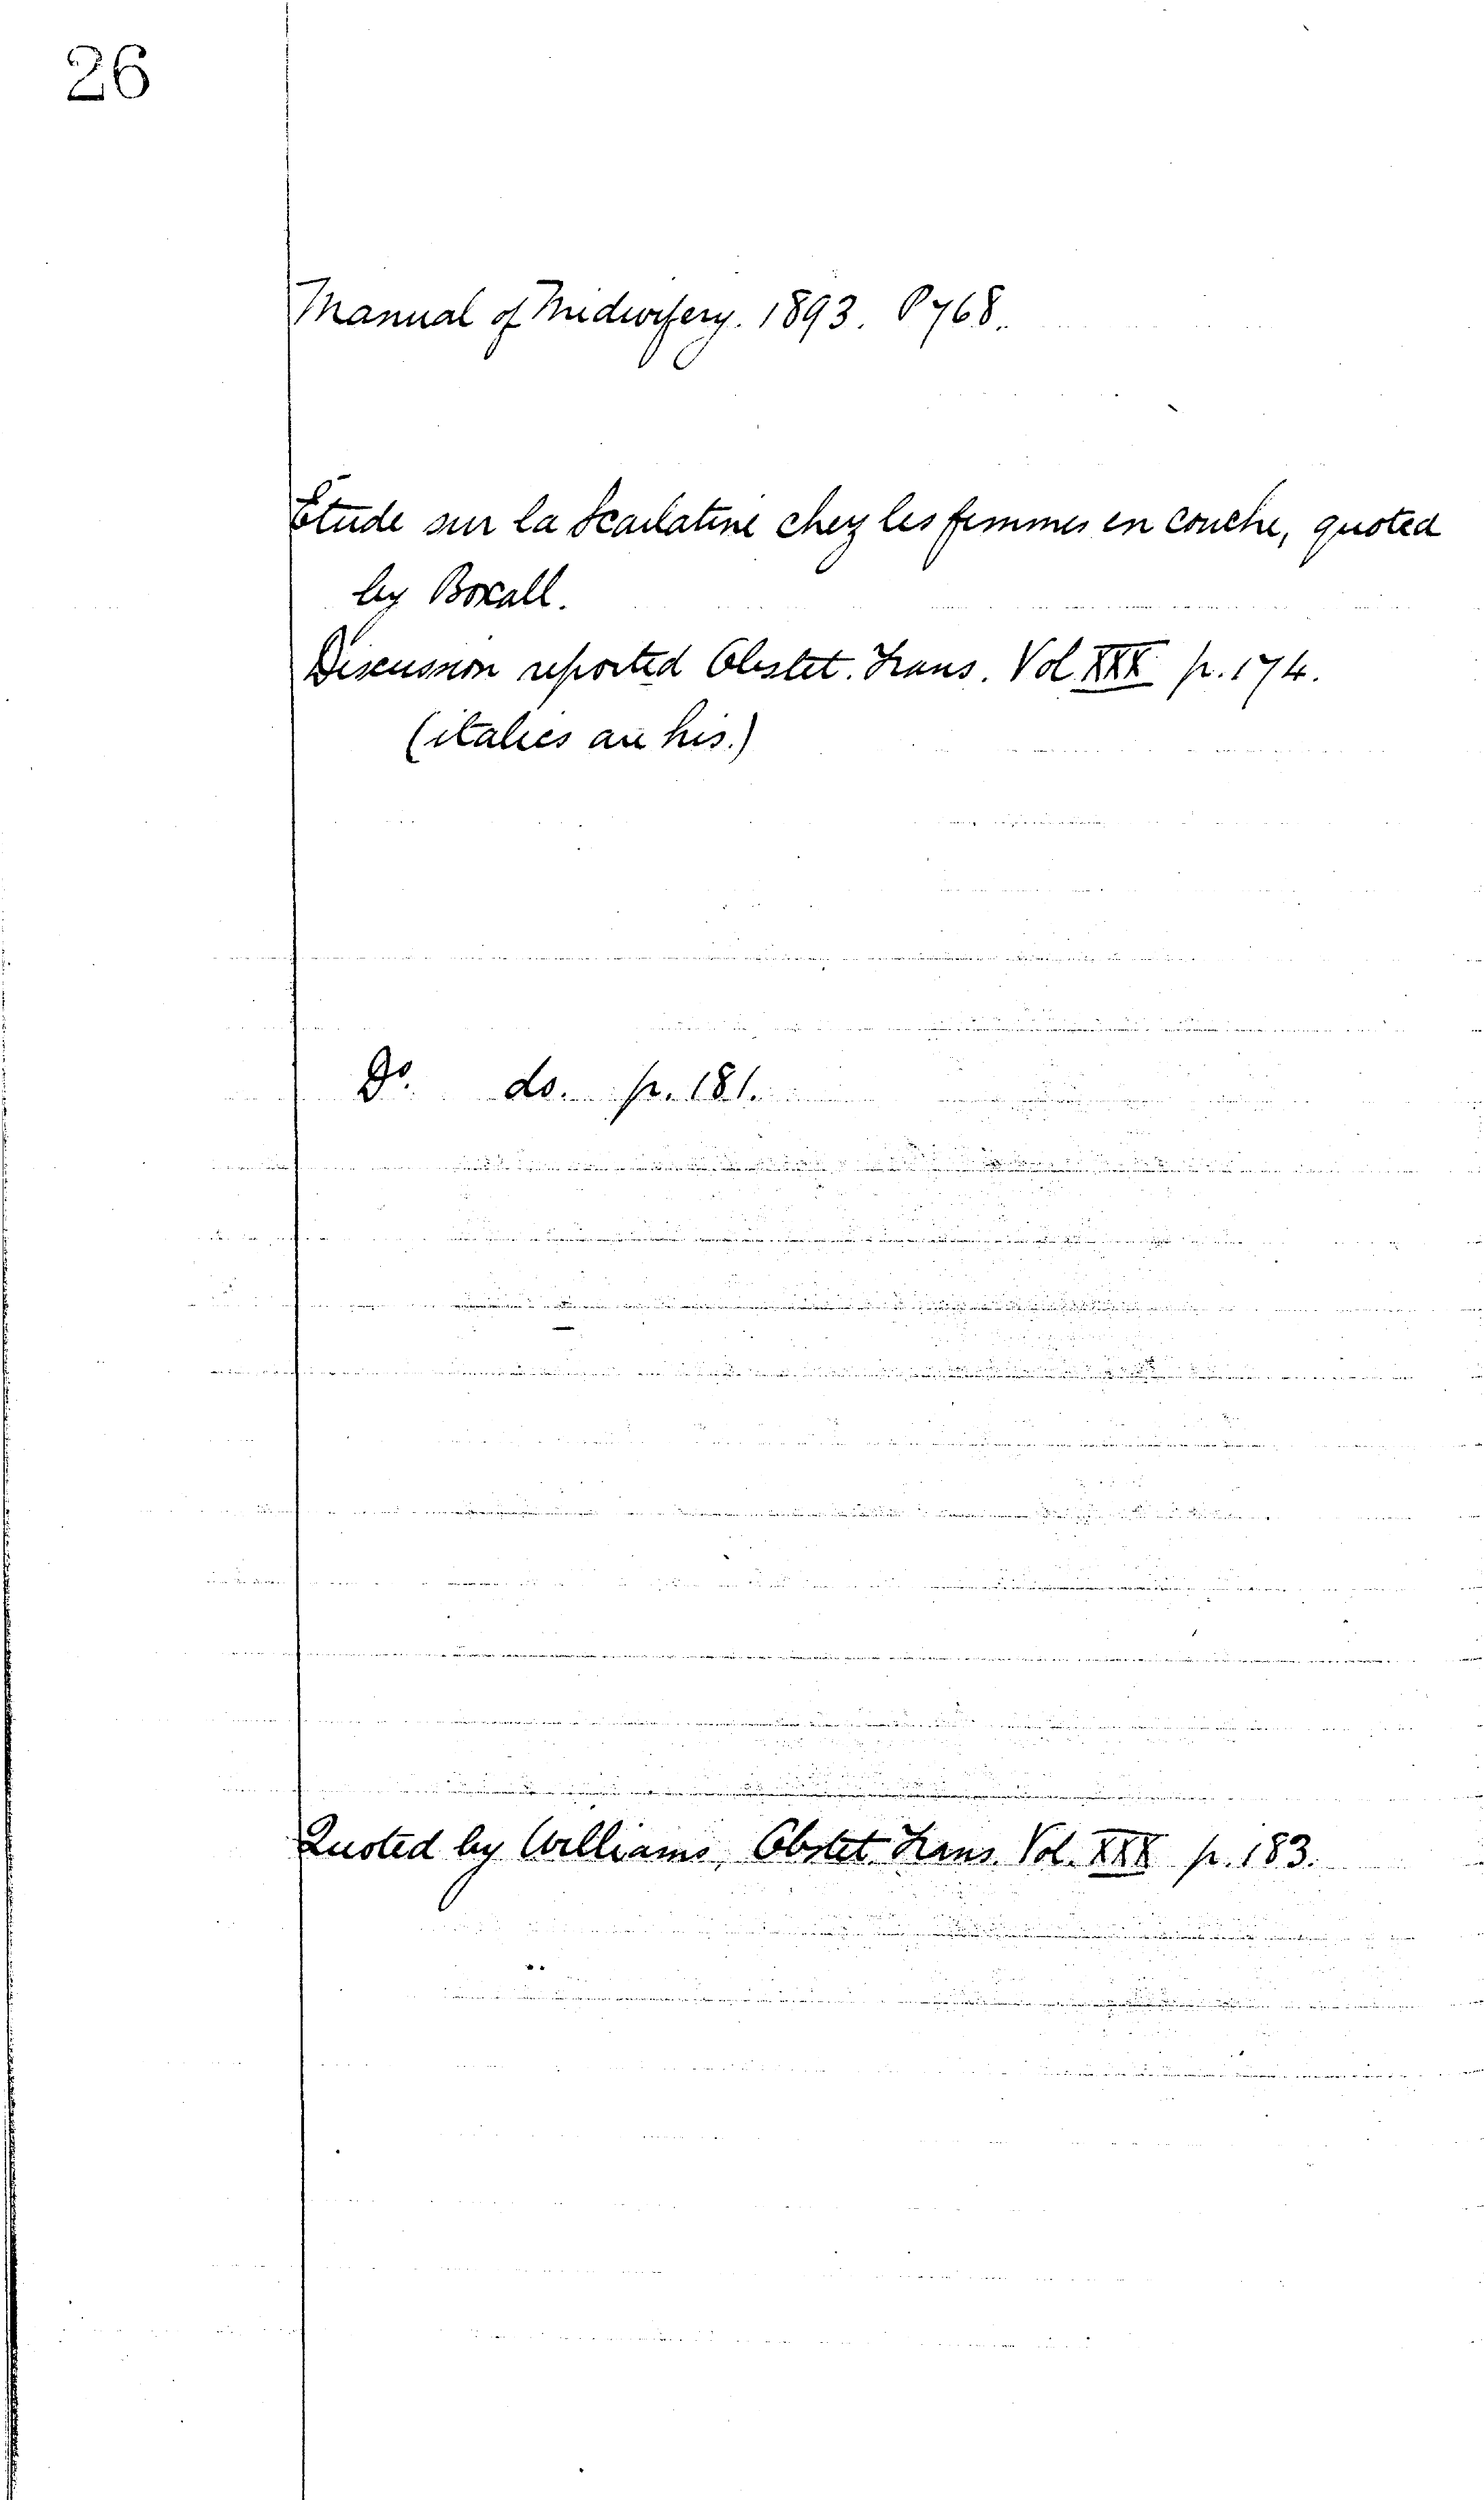 26
Manual of Midwifery. 1893. P 768.
Étude sur la Scarlatine chez les femmes en couche, quoted
by Boxall.
Discussion reported Obstet. Trans. Vol XXX p. 174.
(italics are his.)
Do. do. p. 181.
Quoted by Williams, Obstet. Trans. Vol. XXX p. 183.